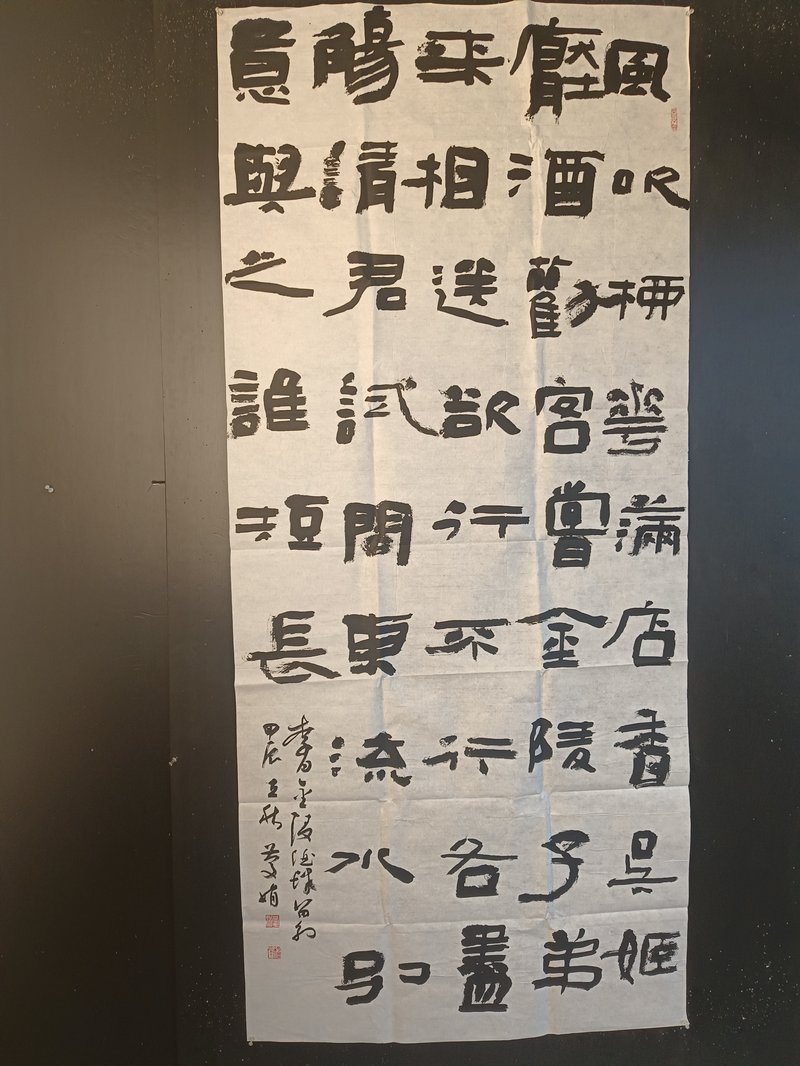 風吹柳華滿店香吳姬
壓酒勸客嘗金陵子弟
來相送欲行不行各盡
觴請君試問東流水別
意與之誰短長
李白金陵酒肆留別
甲辰秋